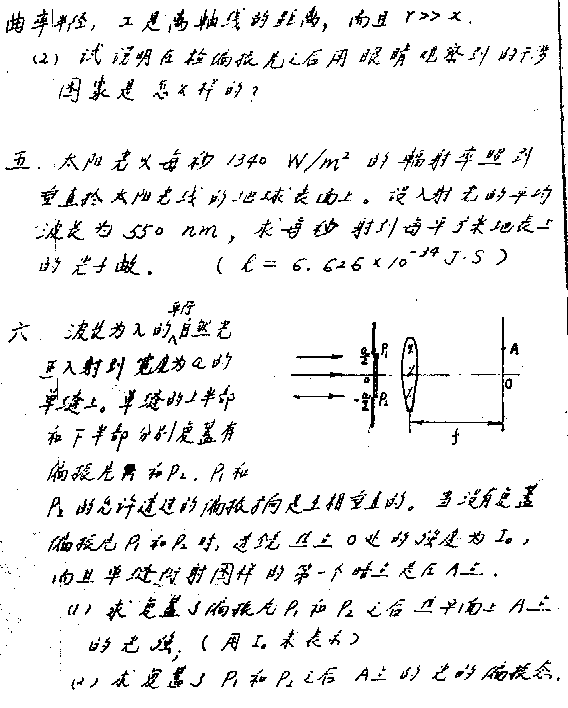 曲率半径, x 是离轴线的距离, 而且 r>>x.
(2) 试说明在检偏振片之后用眼睛观察到的干涉
图象是怎么样的?
五. 太阳光以每秒 1340 W/m² 的辐射率照到
垂直于太阳光线的地球表面上。设入射光的平均
波长为 550 nm, 求每秒射到每平方米地表上
的光子数. ( ℓ = 6.626×10⁻³⁴ J·S )
六 波长为λ的平行自然光
正入射到宽度为a的
单缝上。单缝的上半部
和下半部分别复盖有
偏振片P₁和P₂. P₁和
P₂的允许透过的偏振方向是互相垂直的。当没有复盖
偏振片P₁和P₂时, 透镜焦点0处的强度为I₀,
而且单缝衍射图样的第一个暗点是在A点.
(1) 求复盖了偏振片P₁和P₂之后焦平面上A点
的光强; (用I₀来表示)
(2) 求复盖了P₁和P₂之后A点的光的偏振态.
a/2 P₁ A
0 0
-a/2 P₂
f